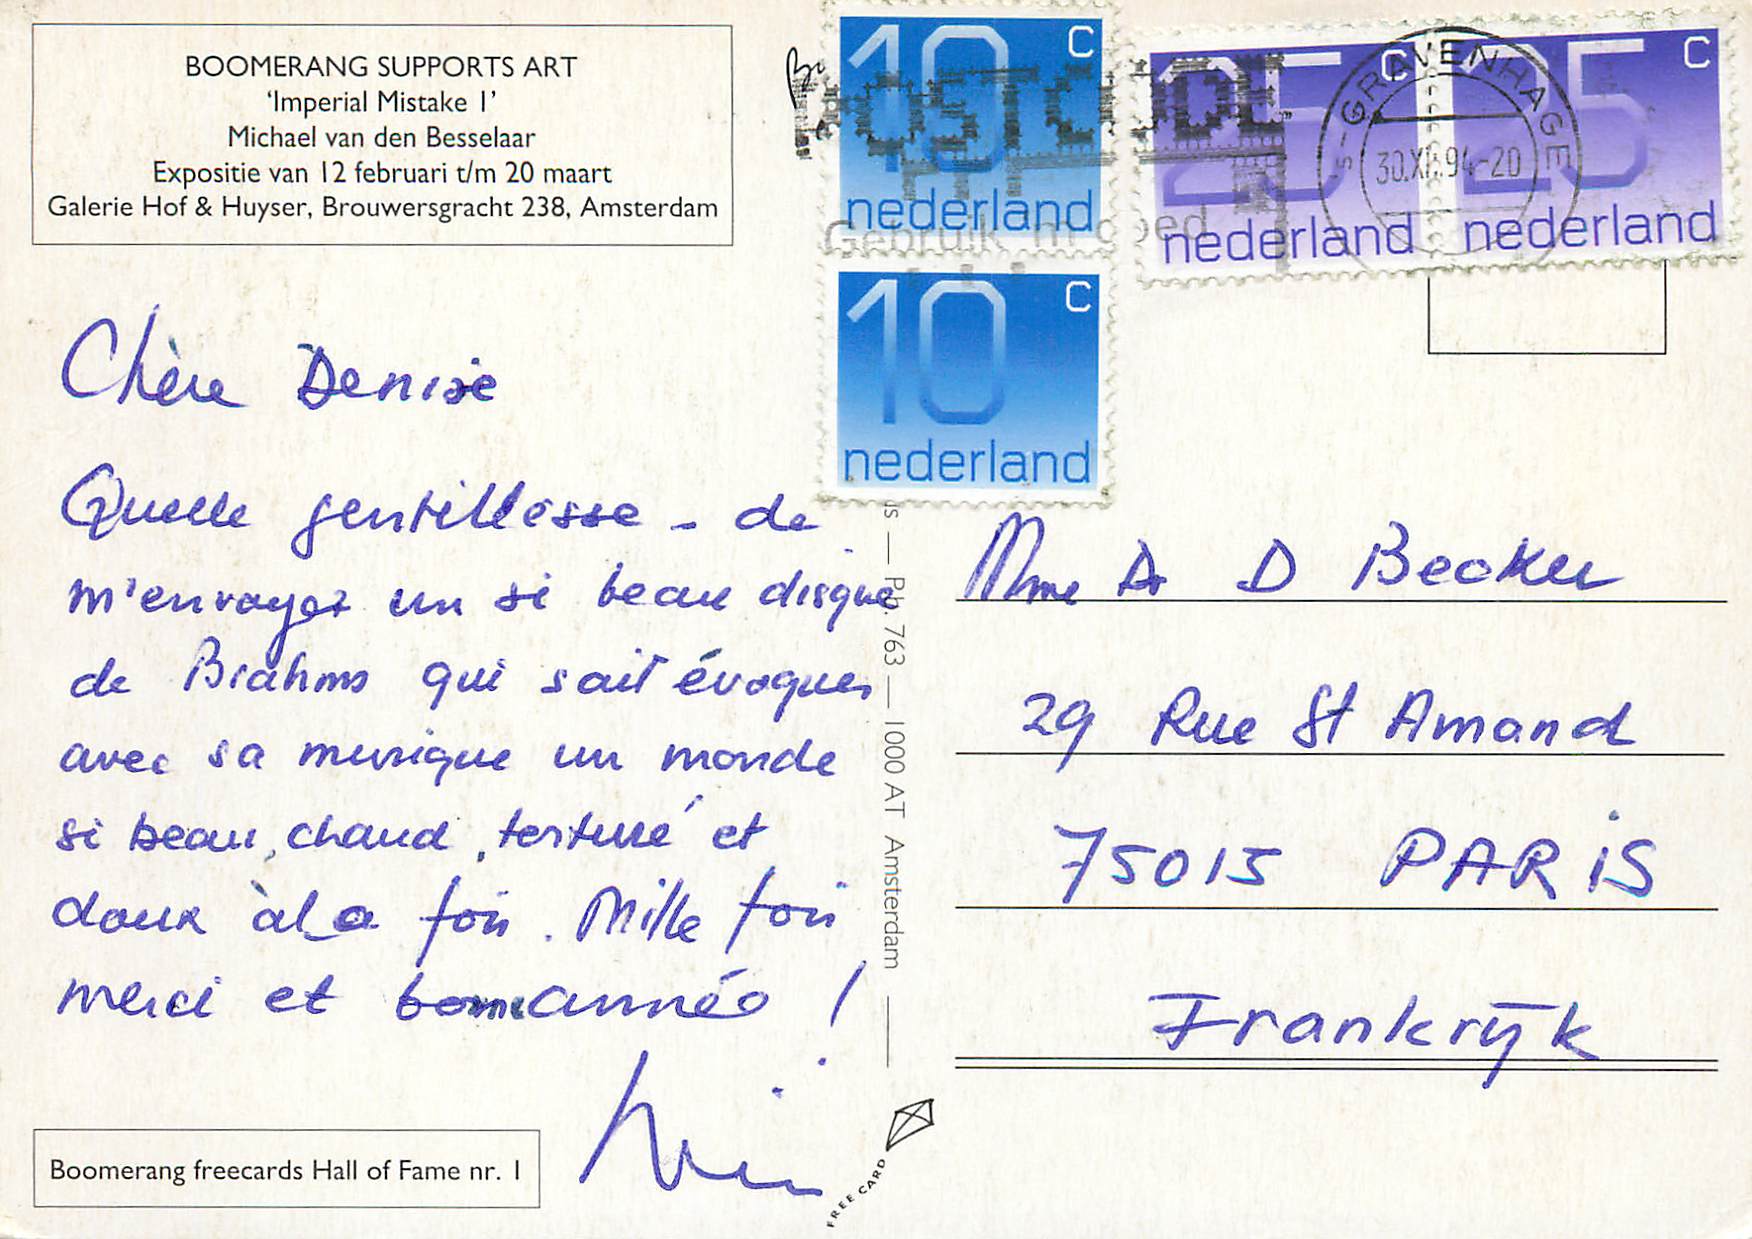 BOOMERANG SUPPORTS ART
‘Imperial Mistake 1’
Michael van den Besselaar
Expositie van 12 februari t/m 20 maart
Galerie Hof & Huyser, Brouwersgracht 238, Amsterdam
10 c
nederland
10 c
nederland
25 c
nederland
25 c
nederland
POSTCODE
Gebruik 'm goed
's-GRAVENHAGE
30.XII.94-20
Chère Denise
Quelle gentillesse - de
m'envoyer un si beau disque
de Brahms qui sait évoquer
avec sa musique un monde
si beau, chaud, torturé et
doux à la fois. Mille fois
merci et bonne année !
Mme Dr D Becker
29 Rue St Amand
75015 PARiS
Frankrijk
— Pb. 763 — 1000 AT Amsterdam —
Boomerang freecards Hall of Fame nr. 1
FREE CARD